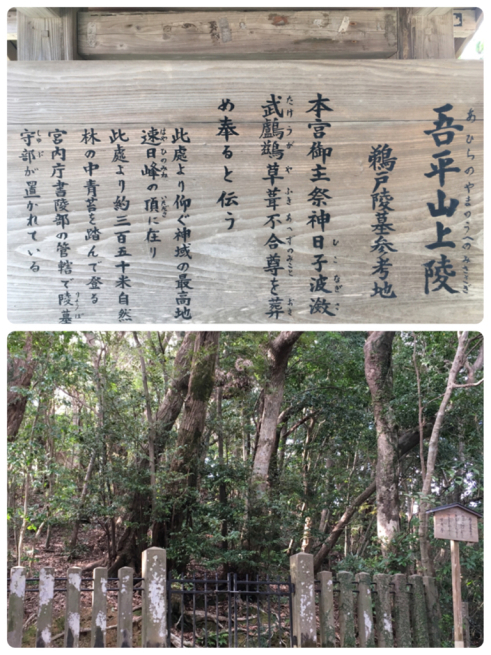 吾平山上陵
あひらのやまのうへのみささぎ
鵜戸陵墓参考地
本宮御主祭神日子波瀲
ひこなぎさ
武鸕鷀草葺不合尊を葬
たけうがやふきあえずのみことおさ
め奉ると伝う
此處より仰ぐ神域の最高地
速日峰の頂に在り
はやひのみねいただき
此處より約三百五十米自然
林の中青苔を踏んで登る
宮内庁書陵部の管轄で陵墓
りょうぼ
守部が置かれている
しゅぶ